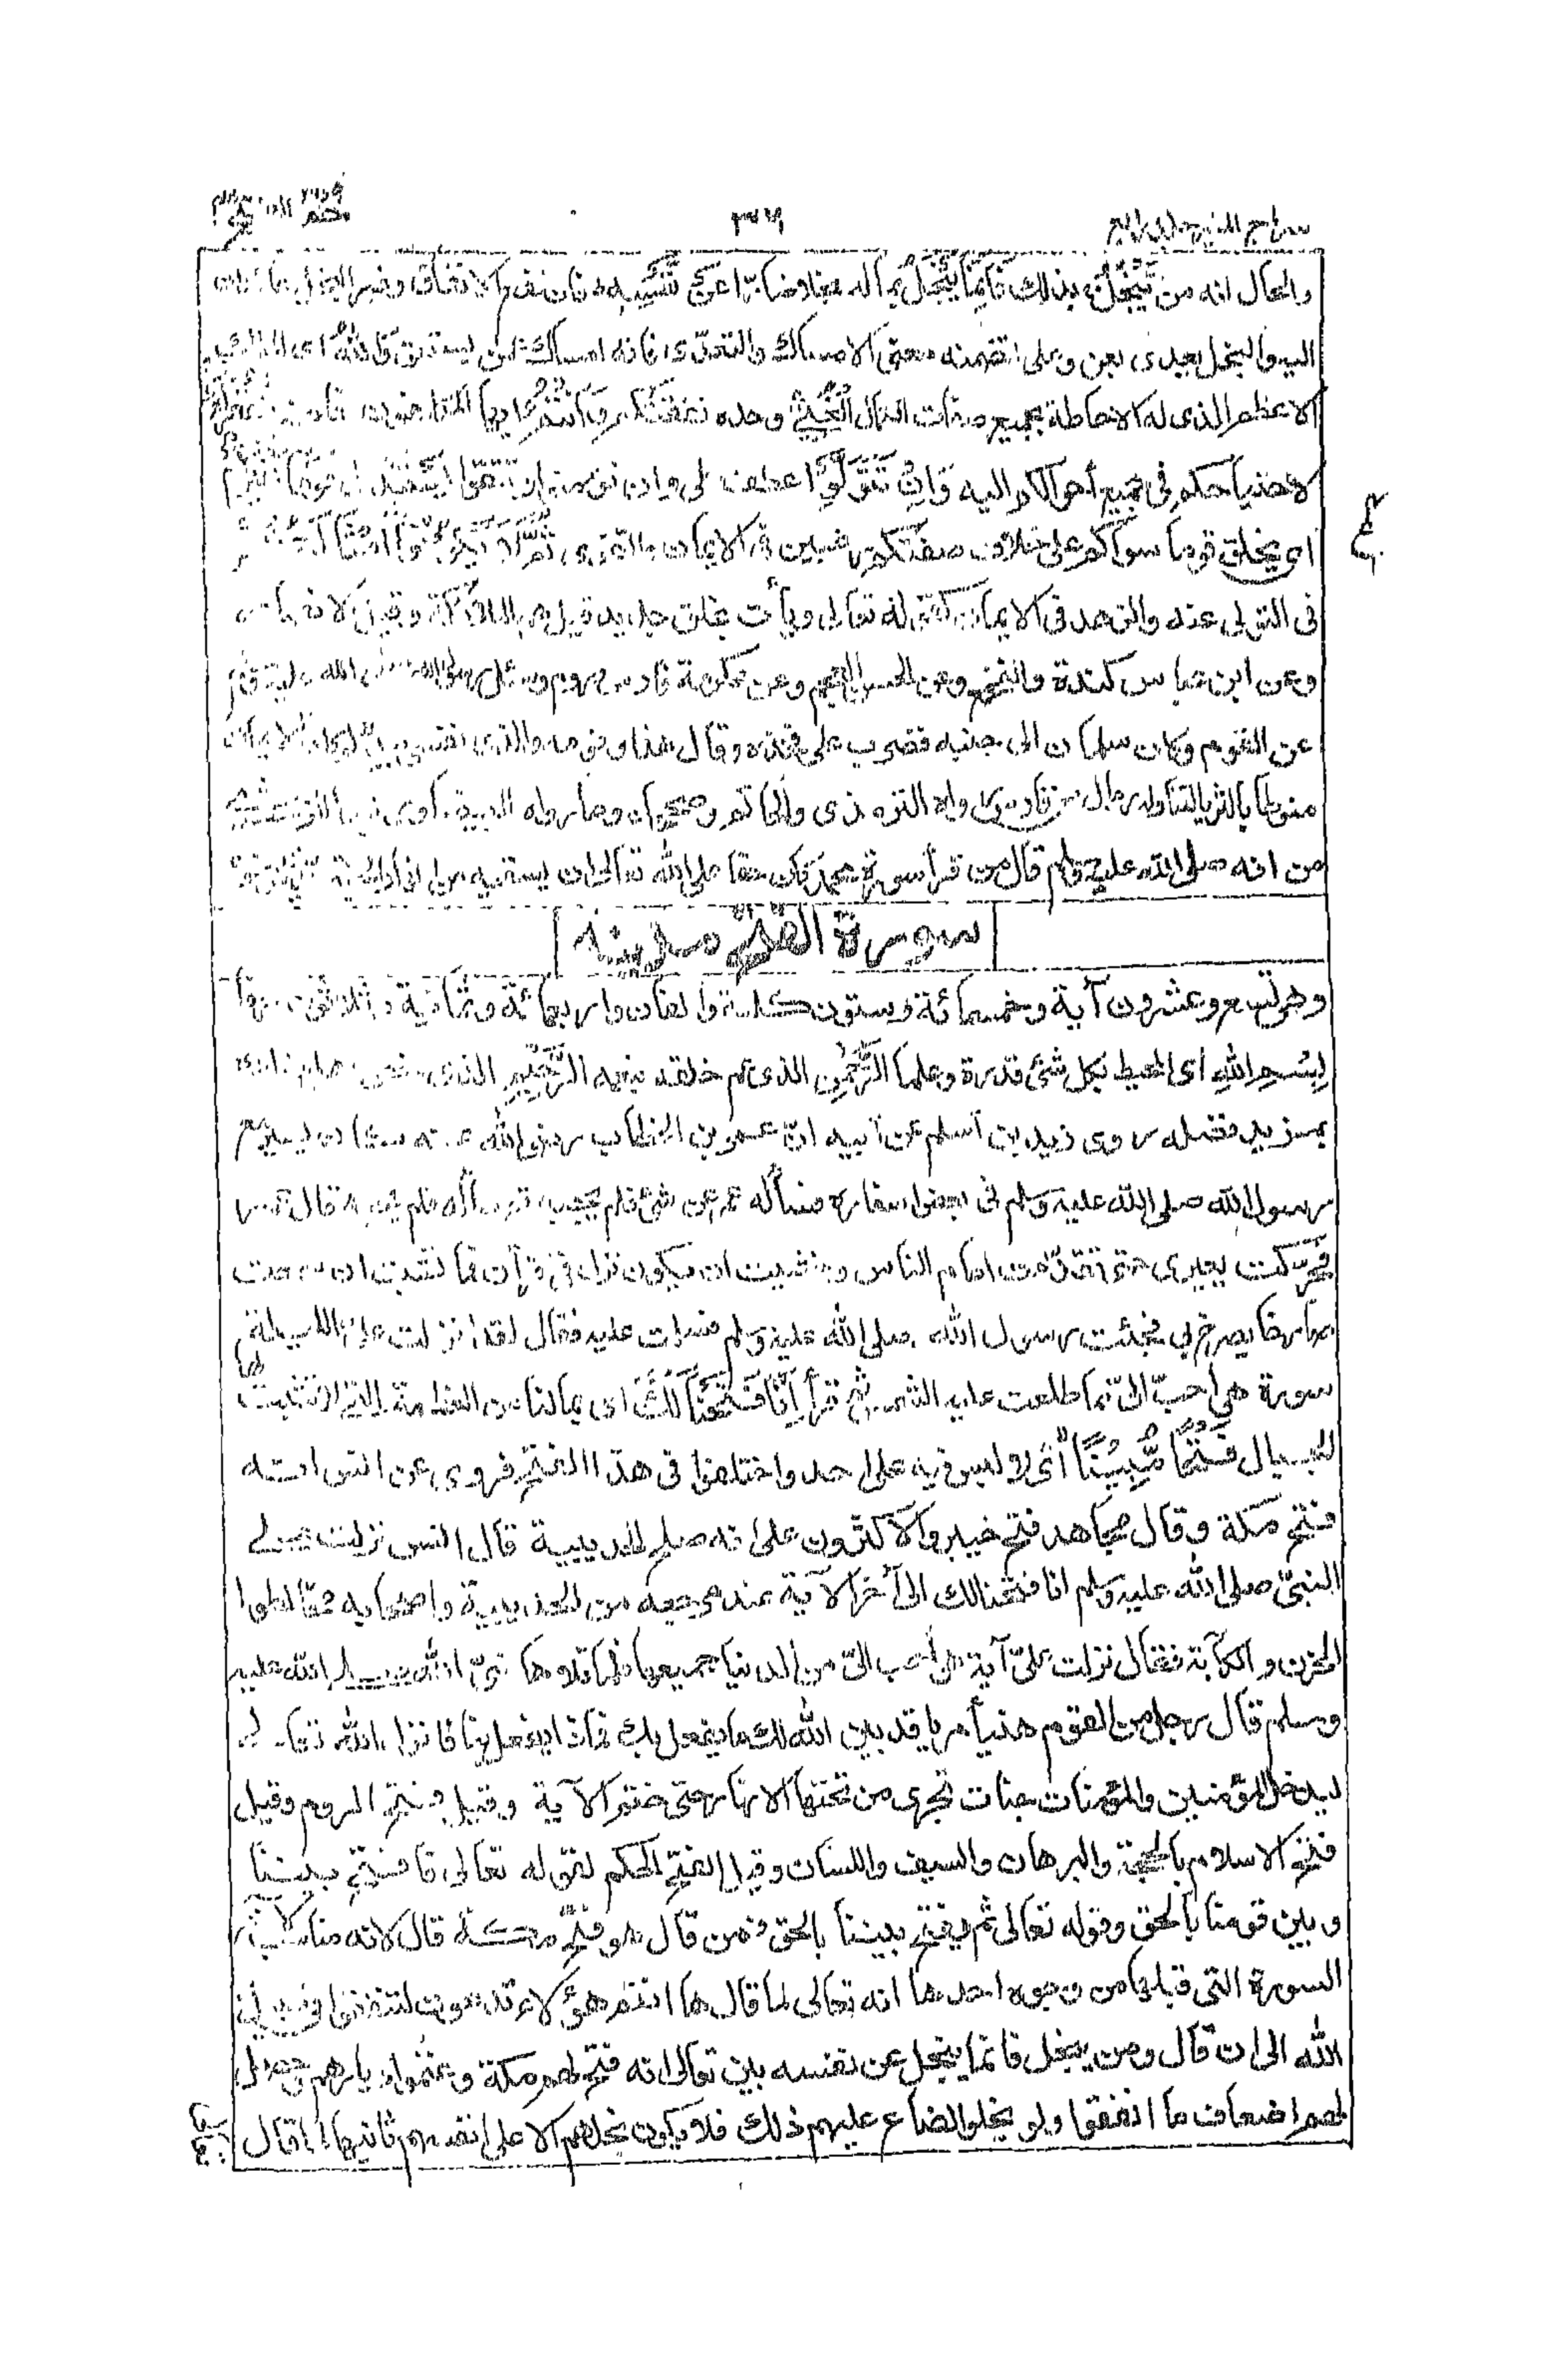 سراج المنير جلد رابع
والحال انه من يَّبْخَلْ بذلك فَاِنَّمَا يَبْخَلُ بماله بخلا صادرًا عَنْ نَّفْسِهٖ فان نفع الانفاق وضرر البخل عائدان
اليه والبخل يعدى بعن وعلى لتضمنه معنى الامساك والتعدّى فانه امساك عن مستحق وَاللهُ اى الملك
الاعظم الذى له الاحاطة بجميع صفات الكمال الْغَنِيُّ وحده نفقتكم وَاَنْتُمُ ايها المتعاضون
لاحتياجكم فى جميع أحوالكم اليه وَاِنْ تَتَوَلَّوْا عطف على وان تؤمنوا وتتقوا يَسْتَبْدِلْ قَوْمًا غَيْرَكُمْ
اى يخلق قوما سواكم على خلاف صفتكم راغبين فى الايمان والتقوى ثُمَّ لَا يَكُوْنُوْا اَمْثَالَكُمْ
فى التولى عنه والزهد فى الايمان كقوله تعالى ويأت بخلق جديد قيل هم الملائكة وقيل الانصار
وعن ابن عباس كندة والنخع وعن الحسن العجم وعن عكرمة فارس والروم وسئل رسول الله صلى الله عليه وسلم
عن القوم وكان سلمان الى جنبه فضرب على فخذه وقال هذا وقومه والذى نفسى بيده لو كان الايمان
منوطا بالثريا لتناوله رجال من فارس رواه الترمذى والحاكم وصححاه وما رواه البيضاوى تبعا للزمخشرى
من انه صلى الله عليه وسلم قال من قرأ سورة محمد كان حقا على الله تعالى ان يسقيه من انهار الجنة
سورة الفتح مدنية
وهى تسع وعشرون آية وخمسمائة وستون كلمة والفان واربعمائة وثمانية وثلاثون حرفا
بِسْمِ اللهِ أى المحيط بكل شئ قدرة وعلما الرَّحْمٰنِ الذى عم خلقه بنعمه الرَّحِيْمِ الذى خص
بمزيد فضله روى زيد بن أسلم عن أبيه انّ عمر بن الخطاب رضى الله عنه كان يسير مع
رسول الله صلى الله عليه وسلم فى بعض اسفاره فسأله عمر عن شئ فلم يجبه ثم سأله فلم يجبه قال عمر
فحرّكت بعيرى حتى تقدّمت امام الناس وخشيت ان يكون نزل فىّ قرآن فما نشبت ان سمعت
صارخا يصرخ بى فجئت رسول الله صلى الله عليه وسلم فسلمت عليه فقال لقد انزلت علىّ الليلة
سورة هى أحبّ الىّ مما طلعت عليه الشمس ثم قرأ اِنَّا فَتَحْنَا لَكَ اى بما لنا من العظمة التى لا تثبت لها
الجبال فَتْحًا مُّبِيْنًا أى لا لبس فيه على احد واختلفوا فى هذا الفتح فروى عن انس انه
فتح مكة وقال مجاهد فتح خيبر والاكثرون على انه صلح الحديبية قال انس نزلت على
النبىّ صلى الله عليه وسلم انا فتحنا لك الى آخر الآية عند مرجعه من الحديبية واصحابه مخالطوا
الحزن والكآبة فقال نزلت علىّ آية هى أحب الىّ من الدنيا جميعها فلما تلاها نبىّ الله صلى الله عليه
وسلم قال رجل من القوم هنيأ مريا قد بين الله لك ما يفعل بك فماذا يفعل بنا فانزل الله تعالى
ليدخل المؤمنين والمؤمنات جنات تجرى من تحتها الانهار حتى ختم الآية وقيل فتح الروم وقيل
فتح الاسلام بالحجة والبرهان والسيف واللسان وقيل الفتح الحكم لقوله تعالى فافتح بيننا
وبين قومنا بالحق وقوله تعالى ثم يفتح بيننا بالحق فمن قال هو فتح مكة قال لانه مناسب لآخر
السورة التى قبلها من وجوه احدها انه تعالى لما قال ها انتم هؤلاء تدعون لتنفقوا فى سبيل
الله الى ان قال ومن يبخل فانما يبخل عن نفسه بين تعالى انه فتح لهم مكة وغنموا ديارهم وحصل
لهم اضعاف ما انفقوا ولو بخلوا لضاع عليهم ذلك فلا يكون بخلهم الا على انفسهم ثانيها لما قال